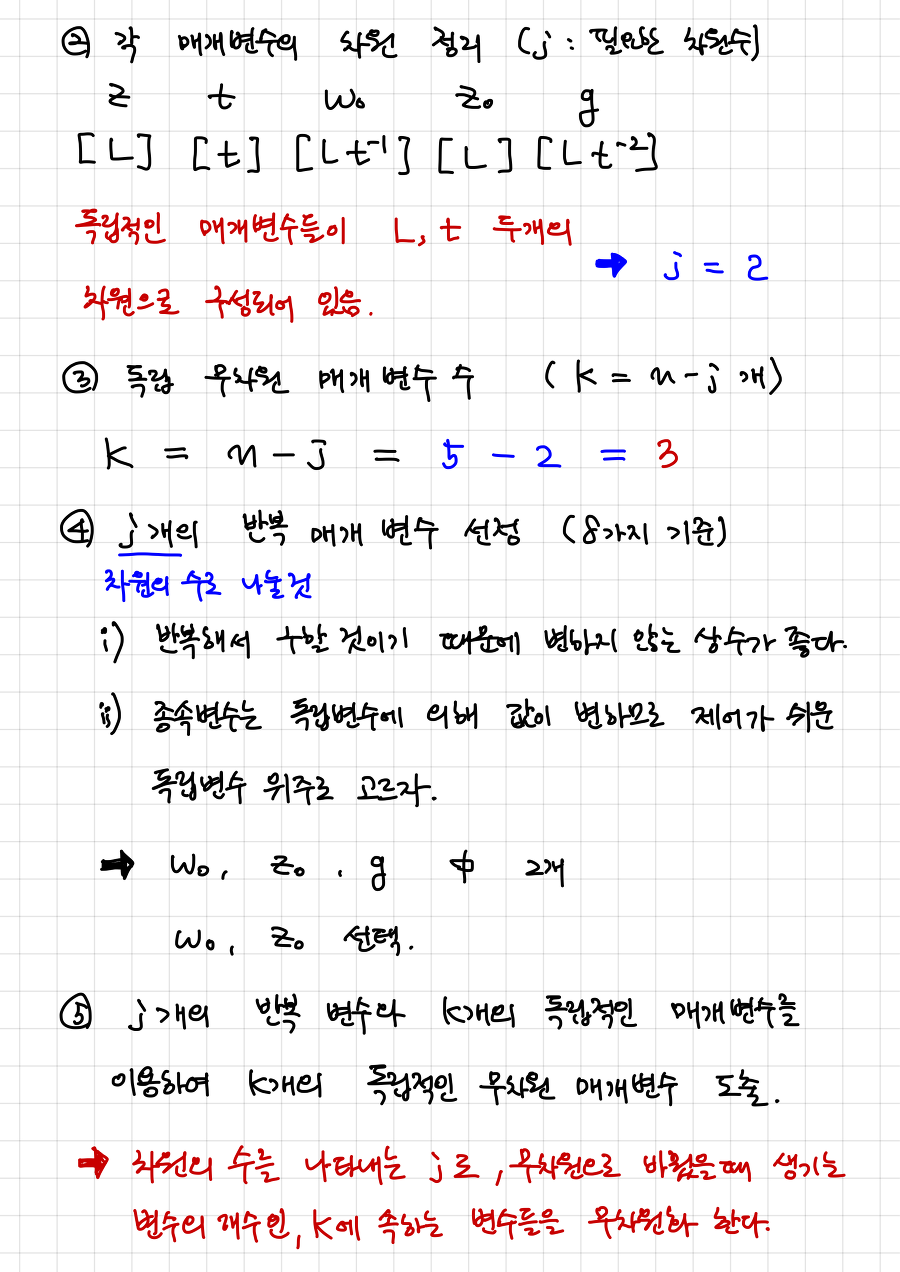 ② 각 매개변수의 차원 정리 (j : 필요한 차원수)
z t w₀ z₀ g
[L] [t] [Lt⁻¹] [L] [Lt⁻²]
독립적인 매개변수들이 L, t 두개의
→ j = 2
차원으로 구성되어 있음.
③ 독립 무차원 매개변수 수 (k = n - j 개)
k = n - j = 5 - 2 = 3
④ j개의 반복 매개 변수 선정 (8가지 기준)
차원의 수로 나눌것
i) 반복해서 구할 것이기 때문에 변하지 않는 상수가 좋다.
ii) 종속변수는 독립변수에 의해 값이 변하므로 제어가 쉬운
독립변수 위주로 고르자.
→ w₀, z₀, g 中 2개
w₀, z₀ 선택.
⑤ j개의 반복 변수와 k개의 독립적인 매개변수를
이용하여 k개의 독립적인 무차원 매개변수 도출.
→ 차원의 수를 나타내는 j로, 무차원으로 바꿨을때 생기는
변수의 개수인, k에 속하는 변수들을 무차원화 한다.